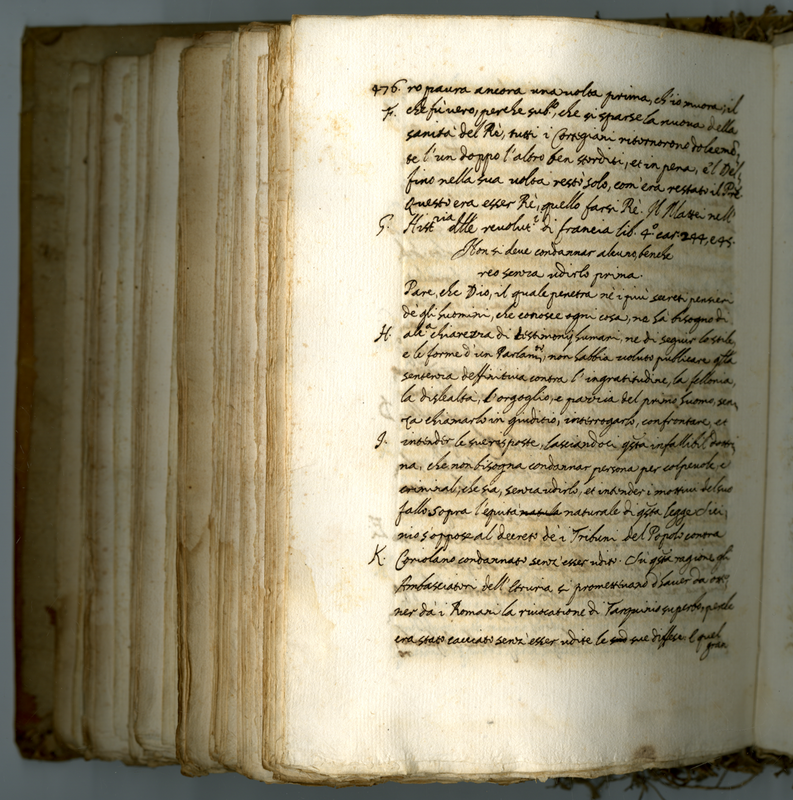 476. ro paura ancora una volta prima, ch'io muora; il
F. che fù vero, perche sub.º, che si sparse la nuova della
sanità del Rè, tutti i Cortigiani ritornorono dolceme~
te l'un doppo l'altro ben storditi, et in pena, e'l Del
fino nella sua volta restò solo, com'era restato il Prê
Questi era esser Rè, quello farsi Rè. Il Mattei nell'
G. Hist.ria delle revolut.i di francia lib. 4.º car. 244, e 45.
Non si deve condannar alcuno, benche
reo senza udirlo prima.
Pare, che Dio, il quale penetra nè i più secreti pensieri
dè gli huomini, che conosce ogni cosa, ne hà bisogno di
H alc.a chiarezza di testimonij humani, ne di seguir lo stile,
e le forme d'un Parlam.to, non habbia voluto publicare q.sta
sentenza deffinitiva contra l'ingratitudine, la fellonia,
la dislealta, l'orgoglio, e pazzia del primo huomo, sen
za chiamarlo in giuditio, interrogarlo, confrontare, et
I. intender le sue risposte, lasciandoci q.sta infallibil dottri
na, che non bisogna condannar persona per colpevole, e
criminal, che sia, senza udirlo, et intender i motivi del suo
fallo. sopra l'equità naturale di q.sta legge Sici
nio s'oppose al decreto dè i Tribuni del Popolo contra
K. Coriolano condannato senz'esser udito. Su q.sta ragione gli
Ambasciatori dell'Etruria si promettevano d'haver da ott
ner da i Romani la rivocatione di Tarquinio superbo, perche
era stato cacciato senz'esser udite le sue diffese. E quel
gran